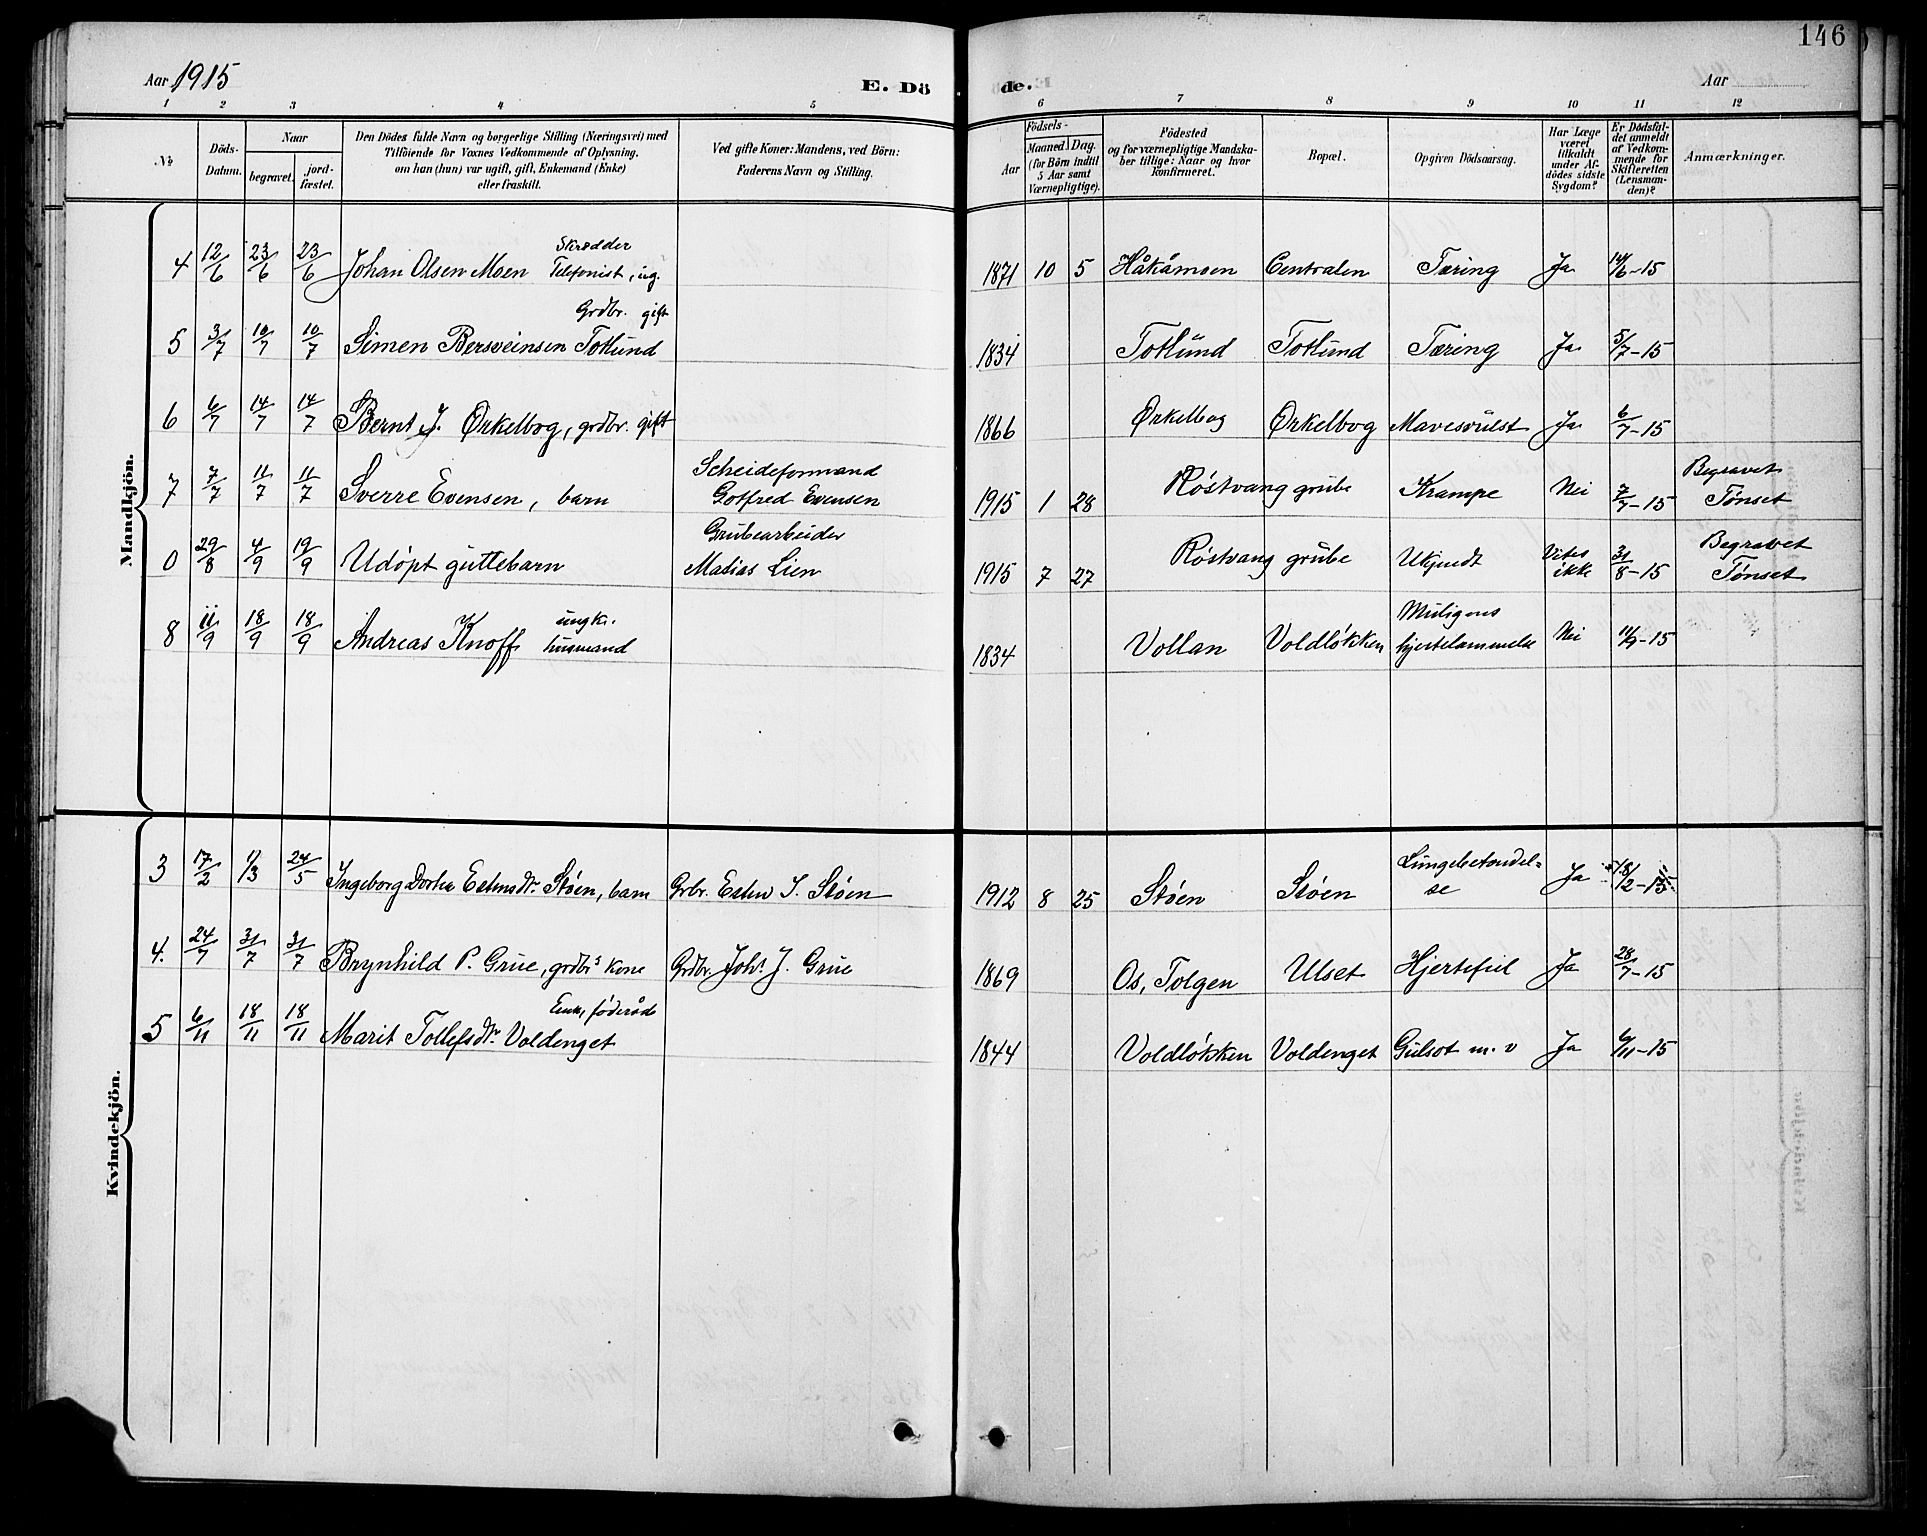 146
Aar 1915
E. Dö
de.
Aar
1 2 3 4 5
6 7 8 9 10 11 12
No
Döds-
Datum.
Naar
begravet.
jord-
fæstet.
Den Dödes fulde Navn og borgerlige Stilling (Næringsvei) med
Tilföiende for Voxnes Vedkommende af Oplysning,
om han (hun) var ugift, gift, Enkemand (Enke)
eller fraskilt.
Ved gifte Koner: Mandens, ved Börn:
Faderens Navn og Stilling.
Födsels-
Aar
Maaned. Dag.
(for Börn indtil
5 Aar samt
Værnepligtige).
Födested
og for værnepligtige Mandska-
ber tillige: Naar og hvor
konfirmeret.
Bopæl.
Opgiven Dödsaarsag.
Har Læge
været
tilkaldt
under Af-
dödes sidste
Sygdom?
Er Dödsfal-
det anmeldt
af Vedkom-
mende for
Skifteretten
(Lensman-
den)?
Anmærkninger.
Mandkjön.
Skrædder
4 12/6 23/6 23/6 Johan Olsen Moen Telefonist, ug. 1871 10 5 Håkåmoen Centralen Tæring Ja 14/6-15
Grdbr. gift
5 3/7 10/7 10/7 Simen Bersveinsen Totlund 1834 Totlund Totlund Tæring Ja 5/7-15
6 6/7 14/7 14/7 Bernt J. Ørkelbog, grdbr. gift 1866 Ørkelbog Ørkelbog Mavesvulst Ja 6/7-15
Scheideformand Begravet
7 7/7 11/7 11/7 Sverre Evensen, barn Gotfred Evensen 1915 1 28 Røstvang grube Krampe Nei 7/7-15 Tønset
Grubearbeider Begravet
0 29/8 4/9 19/9 Udøpt guttebarn Matias Lien 1915 7 27 Røstvang grube Ukjendt Vites ikke 31/8-15 Tønset
ungk. Muligens
8 11/9 18/9 18/9 Andreas Knoff husmand 1834 Vollan Voldløkken hjertelammelse Nei 11/9-15
Kvindekjön.
Lungebetændel-
3 17/2 1/3 24/5 Ingeborg Dorhea Estensdtr. Støen, barn Grbr. Esten S. Støen 1912 8 25 Støen Støen se Ja 18/2-15
4. 24/7 31/7 31/7 Brynhild P. Grue, grdbrs kone Grdbr. Joh. J. Grue 1869 Os, Tolgen Ulset Hjertefeil Ja 28/7-15
Enke, føderåds
5 6/11 18/11 18/11 Marit Tollefsdtr. Voldenget 1844 Voldløkken Voldenget Gulsot m. v Ja 6/11-15